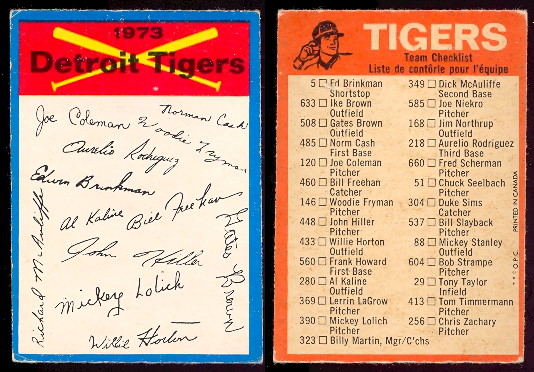 1973
Detroit Tigers
Norman Cash
Joe Coleman
Woodie Fryman
Aurelio Rodriguez
Edwin Brinkman
Al Kaline
Bill Freehan
John Hiller
Mickey Lolich
Willie Horton
Richard McAuliffe
Gates Brown
TIGERS
Team Checklist
Liste de contôrle pour l'équipe
5 Ed Brinkman
Shortstop
633 Ike Brown
Outfield
508 Gates Brown
Outfield
485 Norm Cash
First Base
120 Joe Coleman
Pitcher
460 Bill Freehan
Catcher
146 Woodie Fryman
Pitcher
448 John Hiller
Pitcher
433 Willie Horton
Outfield
560 Frank Howard
First Base
280 Al Kaline
Outfield
369 Lerrin LaGrow
Pitcher
390 Mickey Lolich
Pitcher
323 Billy Martin, Mgr/C'chs
349 Dick McAuliffe
Second Base
585 Joe Niekro
Pitcher
168 Jim Northrup
Outfield
218 Aurelio Rodriguez
Third Base
660 Fred Scherman
Pitcher
51 Chuck Seelbach
Pitcher
304 Duke Sims
Catcher
537 Bill Slayback
Pitcher
88 Mickey Stanley
Outfield
604 Bob Strampe
Pitcher
29 Tony Taylor
Infield
413 Tom Timmermann
Pitcher
256 Chris Zachary
Pitcher
**O.P.C. PRINTED IN CANADA